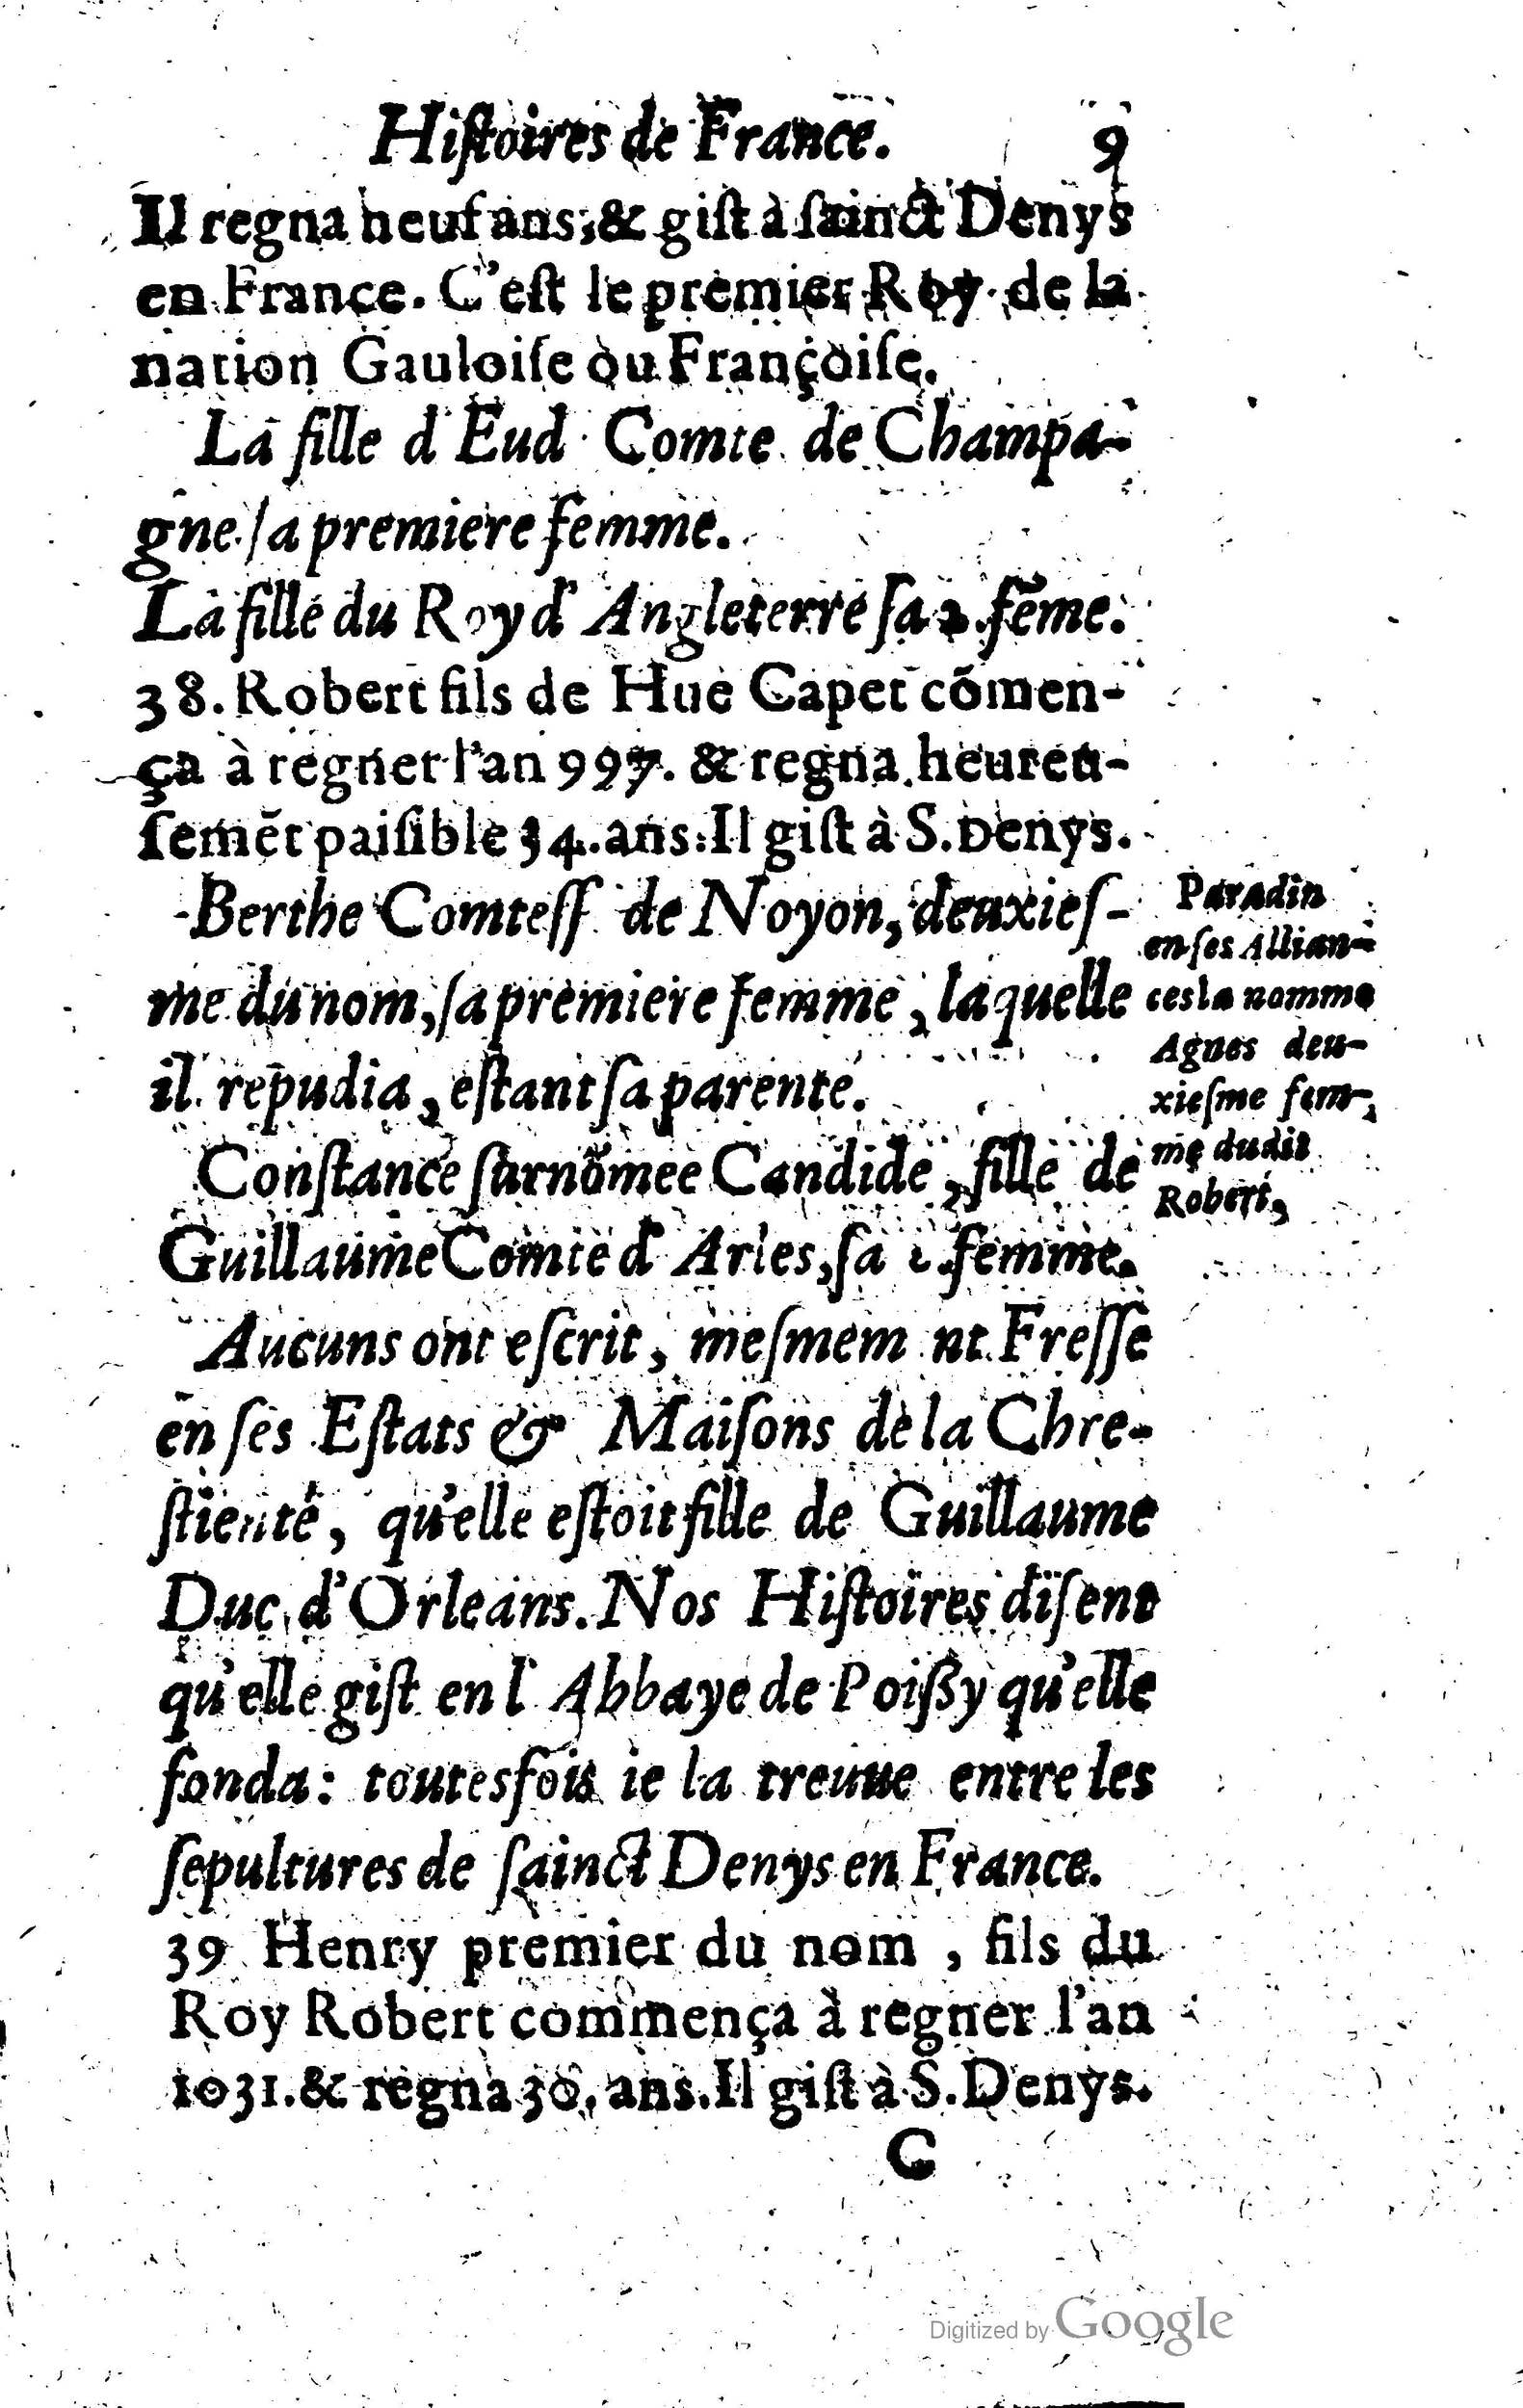 Hiſtoires de France. 9
Il regna neuf ans; & giſt à ſainct Denys
en France. C'eſt le premier Roy de la
nation Gauloiſe ou Françoiſe.
La fille d'Eud Comte de Champa-
gne ſa premiere femme.
La fille du Roy d'Angleterre ſa 2. fẽme.
38. Robert fils de Hue Capet cõmen-
ça à regner l'an 997. & regna heureu-
ſemẽt paiſible 34. ans. Il giſt à S. Denys.
Berthe Comteſſ de Noyon, deuxieſ-
me du nom, ſa premiere femme, laquelle
il repudia, eſtant ſa parente.
Conſtance ſurnõmee Candide, fille de
Guillaume Comte d'Arles, ſa 2. femme.
Aucuns ont eſcrit, meſmem nt Freſſe
en ſes Eſtats & Maiſons de la Chre-
ſtienté, qu'elle eſtoit fille de Guillaume
Duc d'Orleans. Nos Hiſtoires diſent
qu'elle giſt en l'Abbaye de Poiſſy qu'elle
fonda: toutesfois ie la treuue entre les
ſepultures de ſainct Denys en France.
39 Henry premier du nom, fils du
Roy Robert commença à regner l'an
1031. & regna 30. ans. Il giſt à S. Denys.
C
Paradin
en ſes Allian-
ces la nomme
Agnes deu-
xieſme fem-
me dudit
Robert,
Digitized by Google